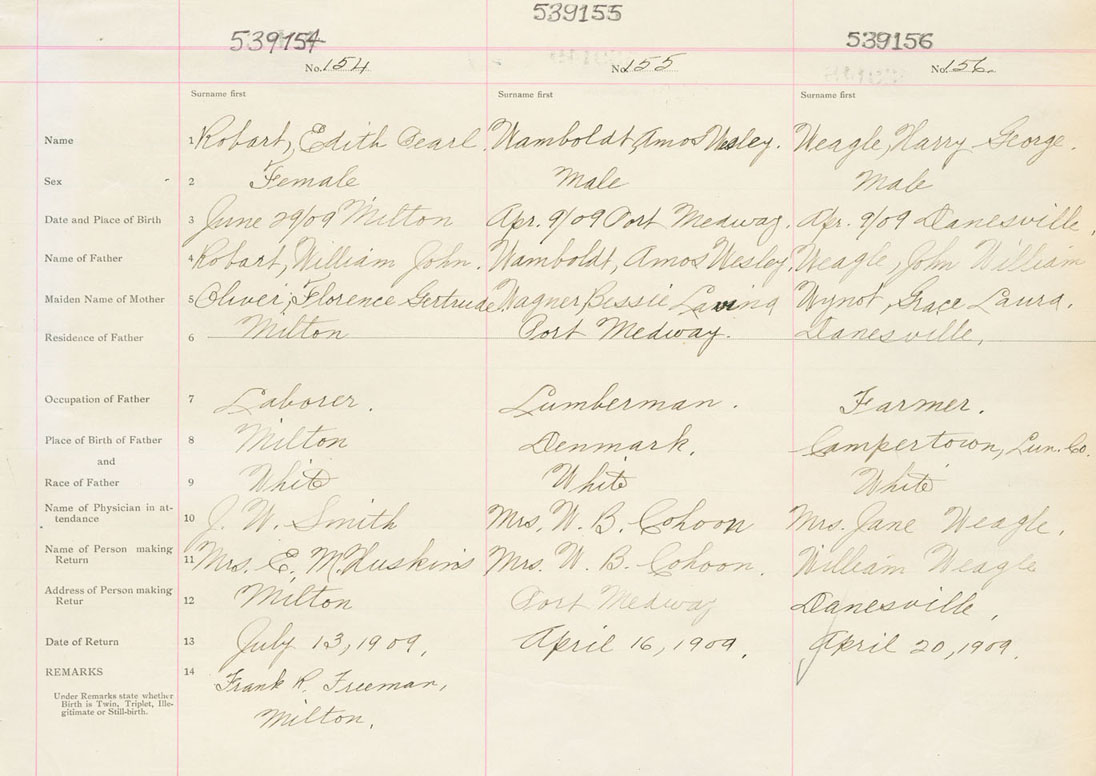 539154 539155 539156
No. 154 No. 155 No. 156.
Surname first Surname first Surname first
Name 1 Robart, Edith Pearl. Wamboldt, Amos Wesley. Weagle, Harry George.
Sex 2 Female Male Male
Date and Place of Birth 3 June 29/09 Milton Apr. 9/09 Port Medway. Apr. 9/09 Danesville,
Name of Father 4 Robart, William John. Wamboldt, Amos Wesley. Weagle, John William
Maiden Name of Mother 5 Oliver, Florence Gertrude. Wagner, Bessie Lavina Wynot, Grace Laura.
Residence of Father 6 Milton Port Medway. Danesville,
Occupation of Father 7 Laborer. Lumberman. Farmer.
Place of Birth of Father 8 Milton Denmark. Campertown, Lun. Co.
and
Race of Father 9 White White White
Name of Physician in at-
tendance 10 J. W. Smith Mrs. W. B. Cohoon Mrs. Jane Weagle.
Name of Person making
Return 11 Mrs. E. M. Huskins Mrs. W. B. Cohoon. William Weagle
Address of Person making
Retur 12 Milton Port Medway Danesville,
Date of Return 13 July 13, 1909, April 16, 1909, April 20, 1909.
REMARKS 14 Frank R. Freeman,
Milton.
Under Remarks state whether
Birth is Twin, Triplet, Ille-
gitimate or Still-birth.